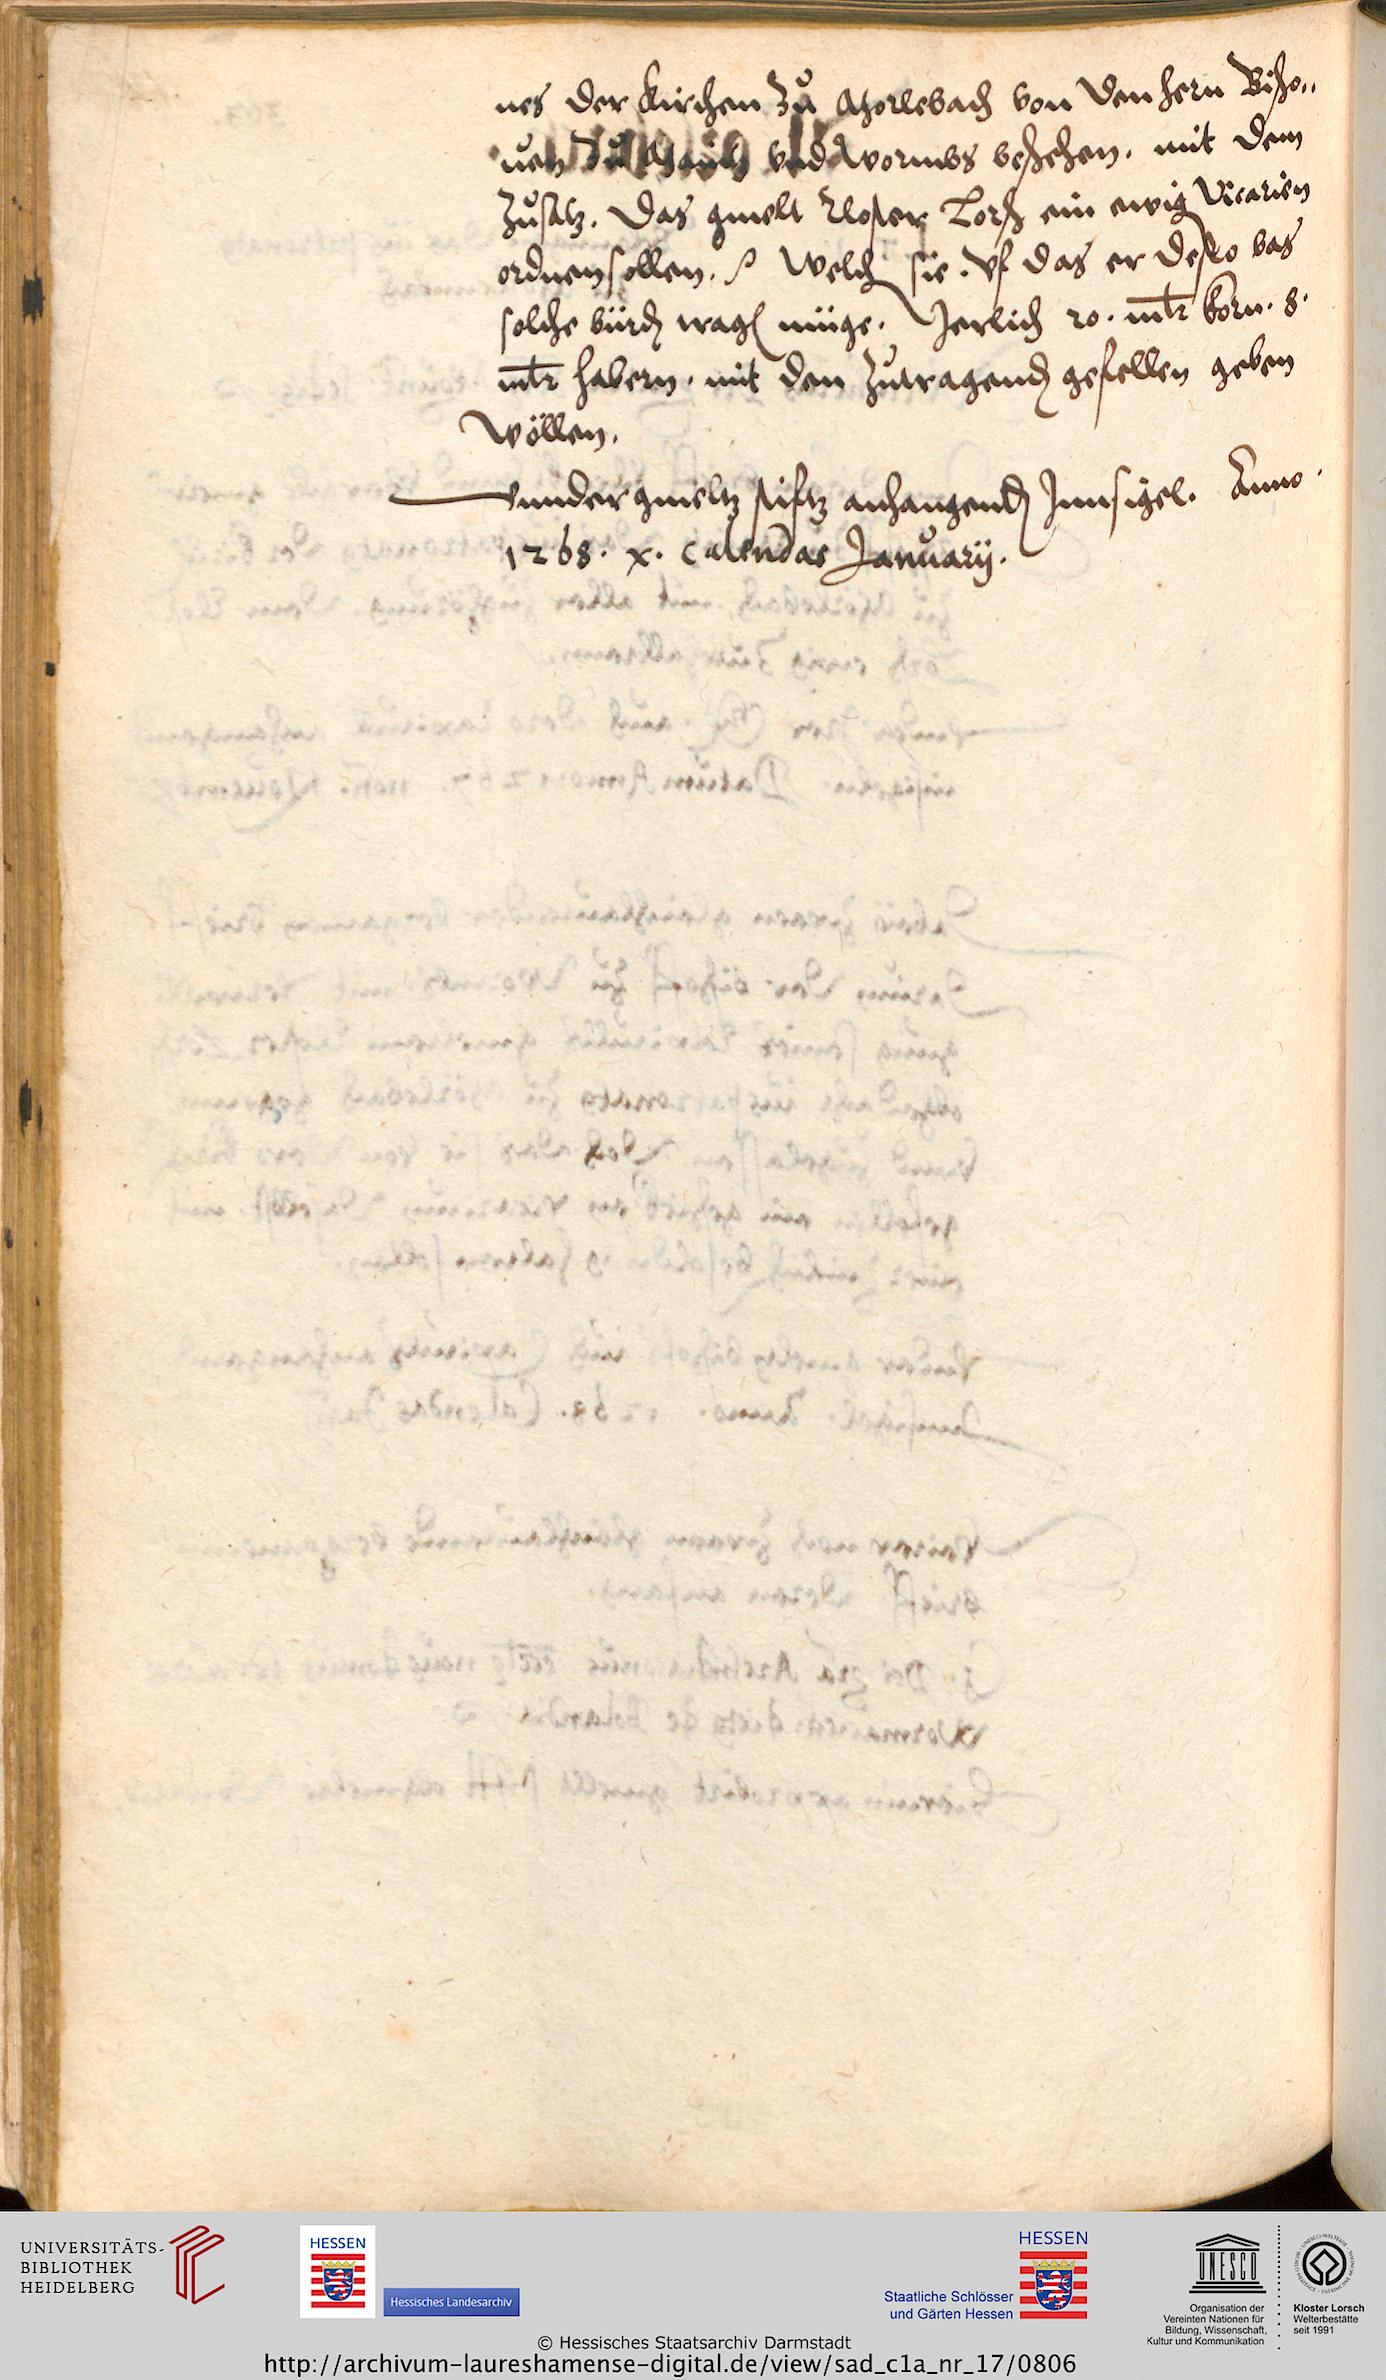 nes der kirchen zů Morlebach von den hern Bischo,,
uen zů Mentz vnd Wormbs besehen. mit dem
Zusatz. Das gmelt Closter Lorsch ein ewig Vicarien
ordnen sollen. Welch sie. vf das er desto bas
solche bürd trag müge. Jerlich 20. mltr korn. 8.
mltr habern. mit den zutragend gefellen geben
wöllen.
vnnder gmeltz stifftz anhangend Innsigel. Anno
1268. x. Calendas Januarij.
UNIVERSITÄTS-
BIBLIOTHEK
HEIDELBERG
HESSEN
Hessisches Landesarchiv
HESSEN
Staatliche Schlösser
und Gärten Hessen
UNESCO
Organisation der
Vereinten Nationen für
Bildung, Wissenschaft,
Kultur und Kommunikation
Kloster Lorsch
Welterbestätte
seit 1991
© Hessisches Staatsarchiv Darmstadt
http://archivum-laureshamense-digital.de/view/sad_c1a_nr_17/0806